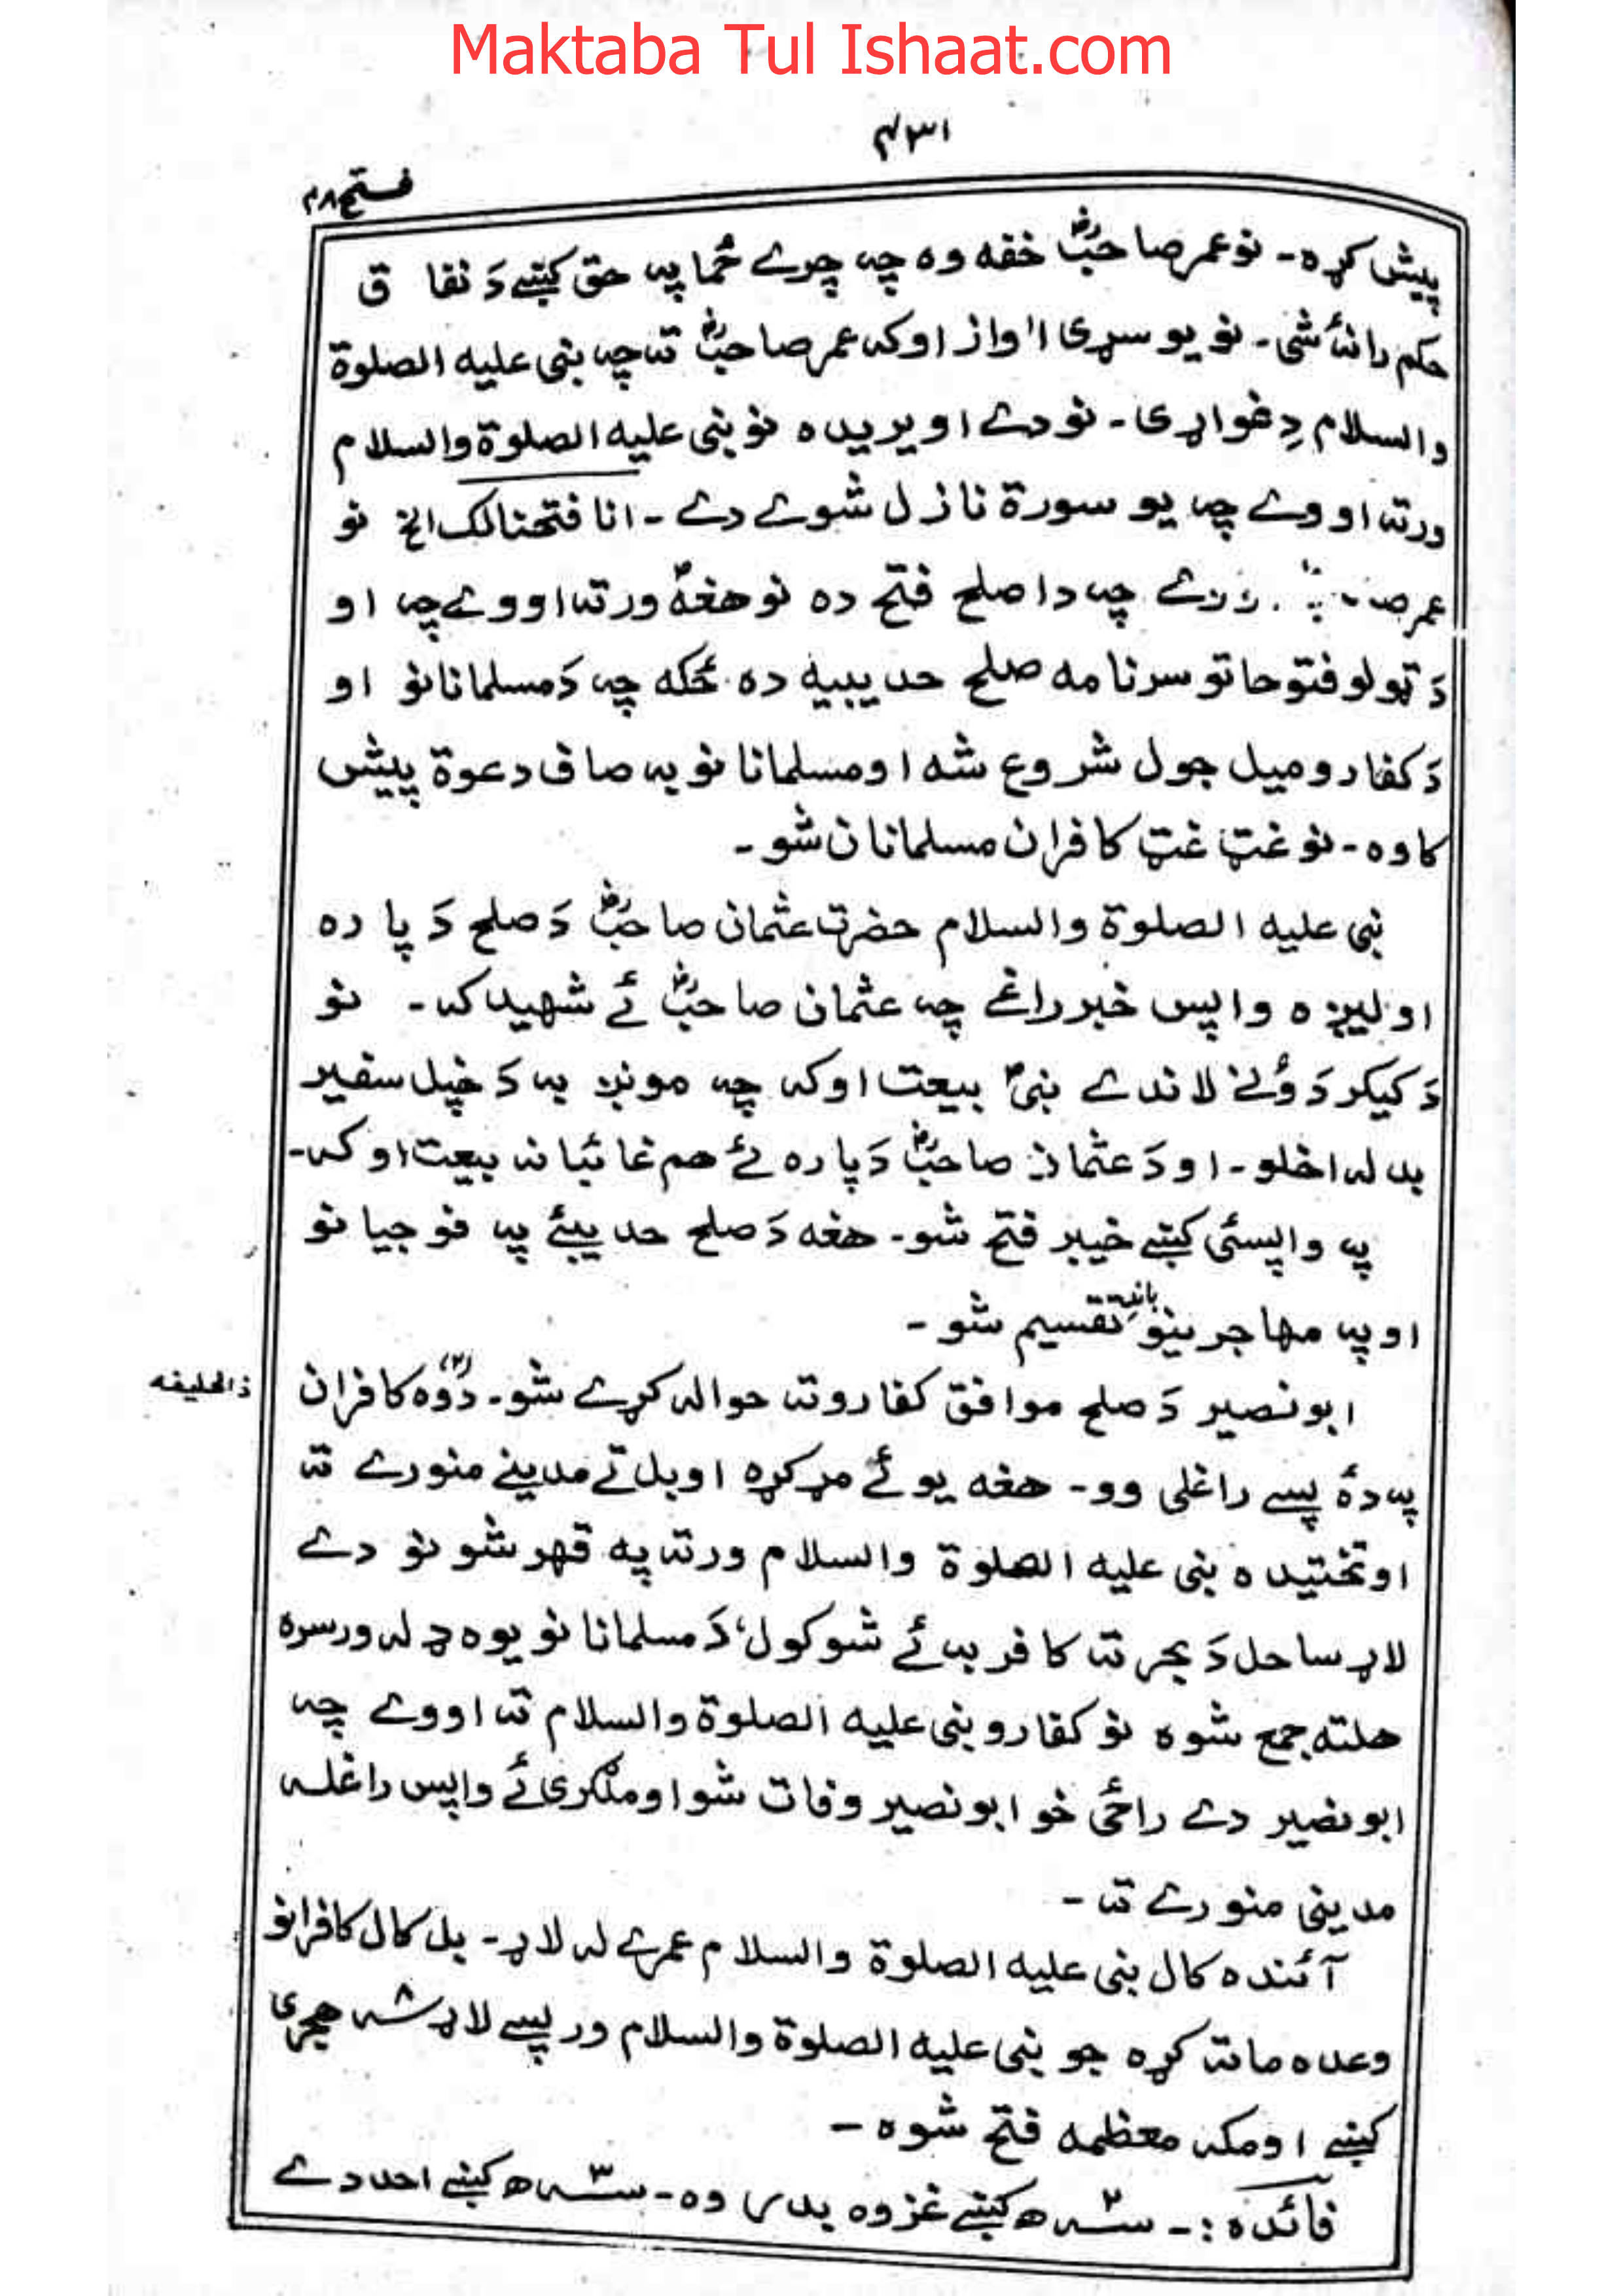 Maktaba Tul Ishaat.com
۴۳۱
فتح ۴۸
پیش کړه۔ نو عمر صاحبؓ خفه وه چه چرے ځما په حق کښے دَ نفا ق
حکم رانۀ شی۔ نو یو سړی اٰواز اوکه عمر صاحبؓ ته چه نبی علیه الصلوة
والسلام دِ غواړی۔ نو دے اویریده نو نبی علیه الصلوة والسلام
ورته اووے چه یو سورة نازل شوے دے۔ انا فتحنا لک الخ نو
عمر چه دا صلح فتح ده نو هغهؐ ورته اووے چه او
دَ ټولو فتوحاتو سرنامه صلح حدیبیه ده ځکه چه دَ مسلمانانو او
دَ کفارو میل جول شروع شه او مسلمانانو به صاف دعوة پیش
کاوه۔ نو غټ غټ کافران مسلمانان شو۔
نبی علیه الصلوة والسلام حضرت عثمان صاحبؓ دَ صلح دَ پاره
اولیږه واپس خبر راغے چه عثمان صاحبؓ ئے شهید که۔ نو
دَ کیکر دَ ونے لاندے نبیؐ بیعت اوکه چه مونږ به دَ خپل سفیر
بدله اخلو۔ او دَ عثمان صاحبؓ دَپاره ئے هم غائبانه بیعت اوکه۔
په واپسئی کښے خیبر فتح شو۔ هغه دَ صلح حدیبئے په فوجیانو
او په مهاجرینو باندِ تقسیم شو۔
ابونصیر دَ صلح موافق کفارو ته حواله کړے شو۔ دُوه (۲) کافران
ذالحلیفه
په دۀ پسے راغلی وو۔ هغه یو ئے مړ کړه او بل تے مدینے منورے ته
اوتختیده نبی علیه الصلوة والسلام ورته په قهر شو نو دے
لاړ ساحل دَ بحر ته کافر به ئے شوکول، دَ مسلمانانو یوه ډله ورسره
هلته جمع شوه نو کفارو نبی علیه الصلوة والسلام ته اووے چه
ابونصیر دے راځی خو ابونصیر وفات شو او ملګری ئے واپس راغله
مدینی منورے ته۔
آئنده کال نبی علیه الصلوة والسلام عمرے له لاړ۔ بل کال کافرانو
وعده ماته کړه جو نبی علیه الصلوة والسلام ورپسے لاړ ۸ﺳﻨﻪ هجری
کښے او مکه معظمه فتح شوه۔
فائده:۔ سنه ۲ھ کښے غزوه بدر وه۔ سنه ۳ھ کښے احد دے